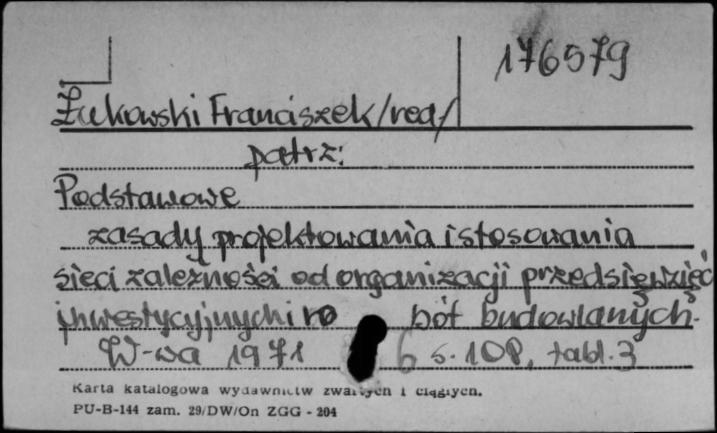 176579
Żukowski Franciszek/red/
patrz:
Podstawowe
zasady projektowania i stosowania
sieci zależności od organizacji przedsięwzięć
inwestycyjnych i ro bót budowlanych.
W-wa 1971 s. 108, tabl. 3
Karta katalogowa wydawnictw zwartych i ciągłych.
PU-B-144 zam. 29/DW/On ZGG - 204